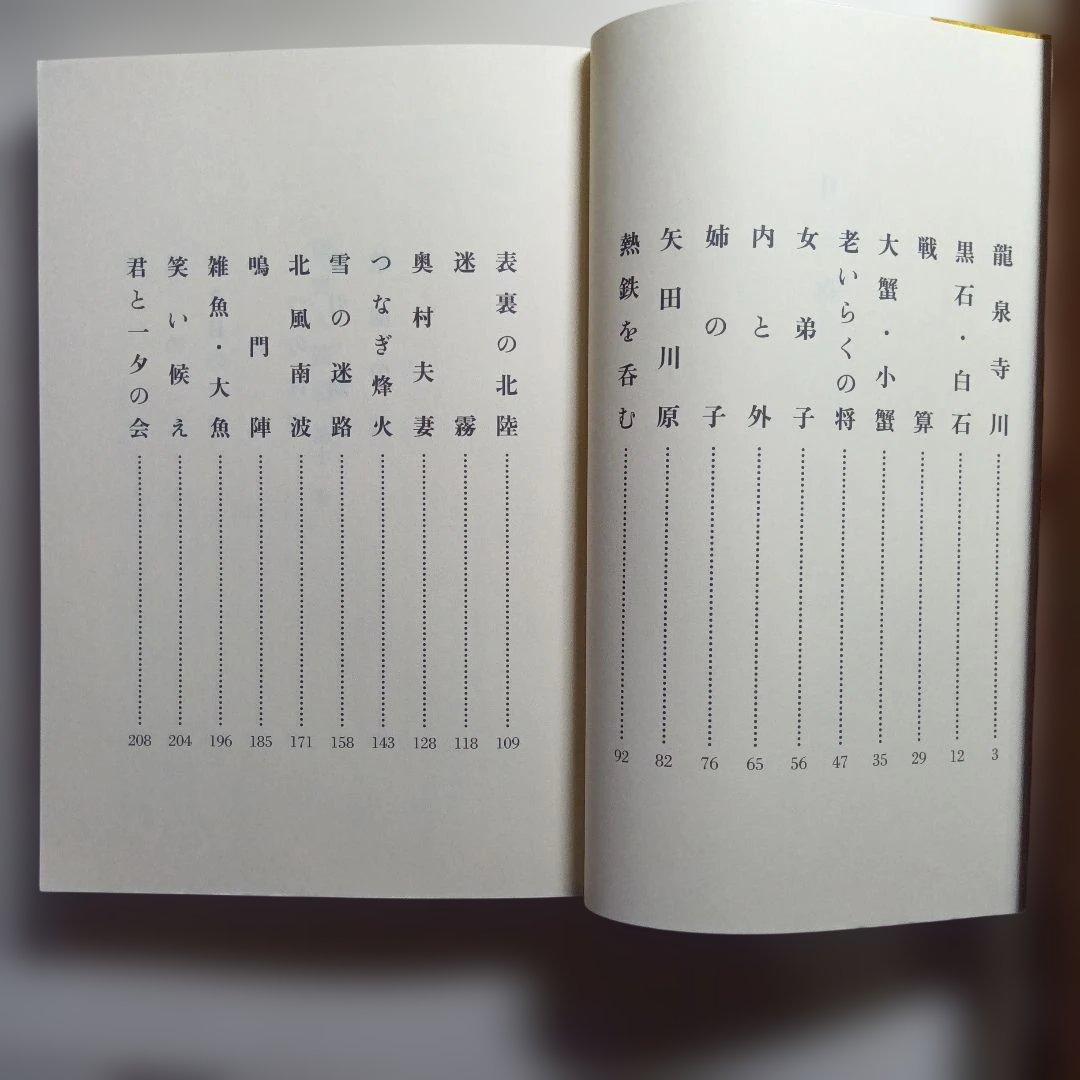 龍泉寺川……3
黒石・白石……12
戦算……29
大蟹・小蟹……35
老いらくの将……47
女弟子……56
内と外……65
姉の子……76
矢田川原……82
熱鉄を呑む……92
表裏の北陸……109
迷霧……118
奥村夫妻……128
つなぎ烽火……143
雪の迷路……158
北風南波……171
鳴門陣……185
雑魚・大魚……196
笑い候え……204
君と一夕の会……208